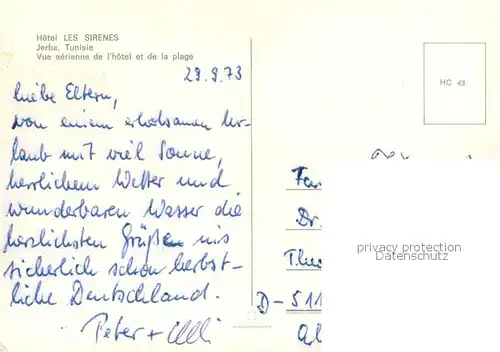 Hôtel LES SIRENES
Jerba, Tunisie
Vue aérienne de l'hôtel et de la plage
29.9.73
HC 43
Liebe Eltern,
von einem erholsamen Ur-
laub mit viel Sonne,
herrlichem Wetter und
wunderbaren Wasser die
herzlichsten Grüßen ins
sicherlich schon herbst-
liche Deutschland.
Peter +
Fam
Dr.
Theo
D-511
privacy protection
Datenschutz